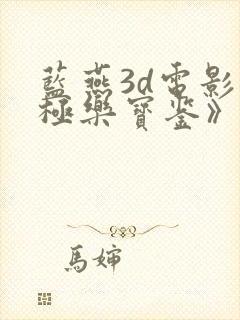 藍燕3d電影
極樂寶鉴》
馬婶